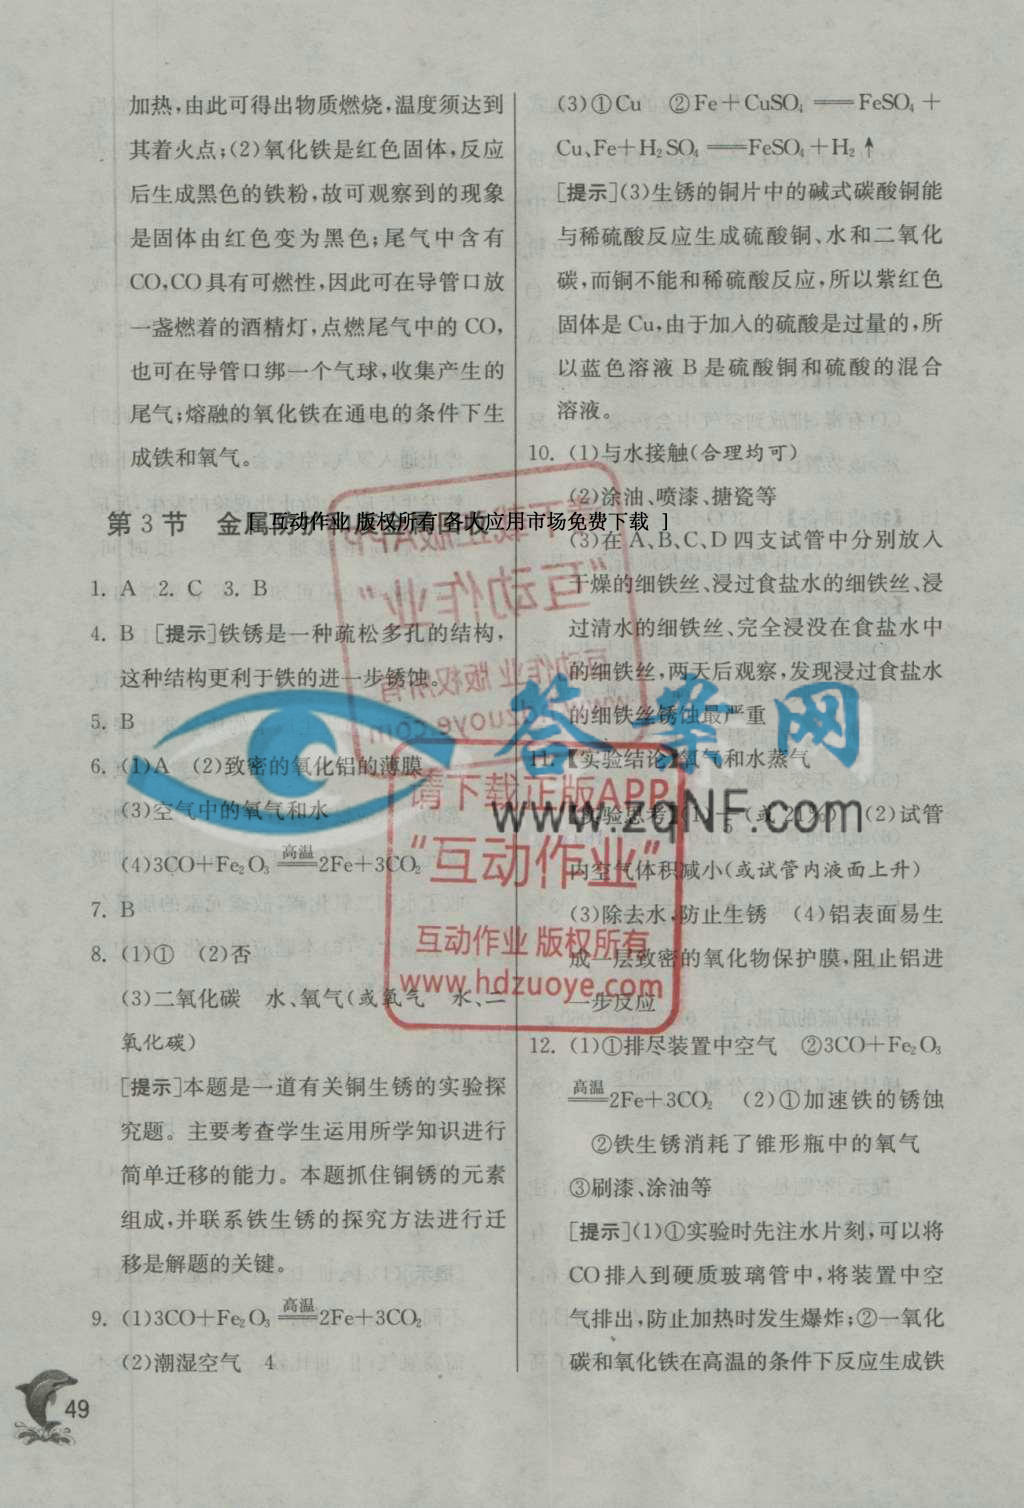 加热，由此可得出物质燃烧，温度须达到
其着火点；(2)氧化铁是红色固体，反应
后生成黑色的铁粉，故可观察到的现象
是固体由红色变为黑色；尾气中含有
CO，CO具有可燃性，因此可在导管口放
一盏燃着的酒精灯，点燃尾气中的 CO，
也可在导管口绑一个气球，收集产生的
尾气；熔融的氧化铁在通电的条件下生
成铁和氧气。
第 3 节 金属防护和废金属回收
[ 互动作业 版权所有 各大应用市场免费下载 ]
1. A 2. C 3. B
4. B [提示]铁锈是一种疏松多孔的结构，
这种结构更利于铁的进一步锈蚀。
5. B
6. (1)A (2)致密的氧化铝的薄膜
(3)空气中的氧气和水
(4)3CO+Fe₂O₃ 高温 2Fe+3CO₂
7. B
8. (1)① (2)否
(3)二氧化碳 水、氧气(或氧气 水、二
氧化碳)
[提示]本题是一道有关铜生锈的实验探
究题。主要考查学生运用所学知识进行
简单迁移的能力。本题抓住铜锈的元素
组成，并联系铁生锈的探究方法进行迁
移是解题的关键。
9. (1)3CO+Fe₂O₃ 高温 2Fe+3CO₂
(2)潮湿空气 4
49
(3)①Cu ②Fe+CuSO₄══FeSO₄+
Cu、Fe+H₂SO₄══FeSO₄+H₂↑
[提示](3)生锈的铜片中的碱式碳酸铜能
与稀硫酸反应生成硫酸铜、水和二氧化
碳，而铜不能和稀硫酸反应，所以紫红色
固体是 Cu，由于加入的硫酸是过量的，所
以蓝色溶液 B 是硫酸铜和硫酸的混合
溶液。
10. (1)与水接触(合理均可)
(2)涂油、喷漆、搪瓷等
(3)在 A、B、C、D 四支试管中分别放入
干燥的细铁丝、浸过食盐水的细铁丝、浸
过清水的细铁丝、完全浸没在食盐水中
的细铁丝，两天后观察，发现浸过食盐水
的细铁丝锈蚀最严重
11. 【实验结论】氧气和水蒸气
【实验思考】(1) (或 21%) (2)试管
内空气体积减小(或试管内液面上升)
(3)除去水，防止生锈 (4)铝表面易生
成一层致密的氧化物保护膜，阻止铝进
一步反应
12. (1)①排尽装置中空气 ②3CO+Fe₂O₃
高温 2Fe+3CO₂ (2)①加速铁的锈蚀
②铁生锈消耗了锥形瓶中的氧气
③刷漆、涂油等
[提示](1)①实验时先注水片刻，可以将
CO排入到硬质玻璃管中，将装置中空
气排出，防止加热时发生爆炸；②一氧化
碳和氧化铁在高温的条件下反应生成铁
答案网
www.zqNF.com
请下载正版APP
“互动作业”
互动作业 版权所有
www.hdzuoye.com
请下载正版APP
“互动作业”
互动作业 版权所有
www.hdzuoye.com